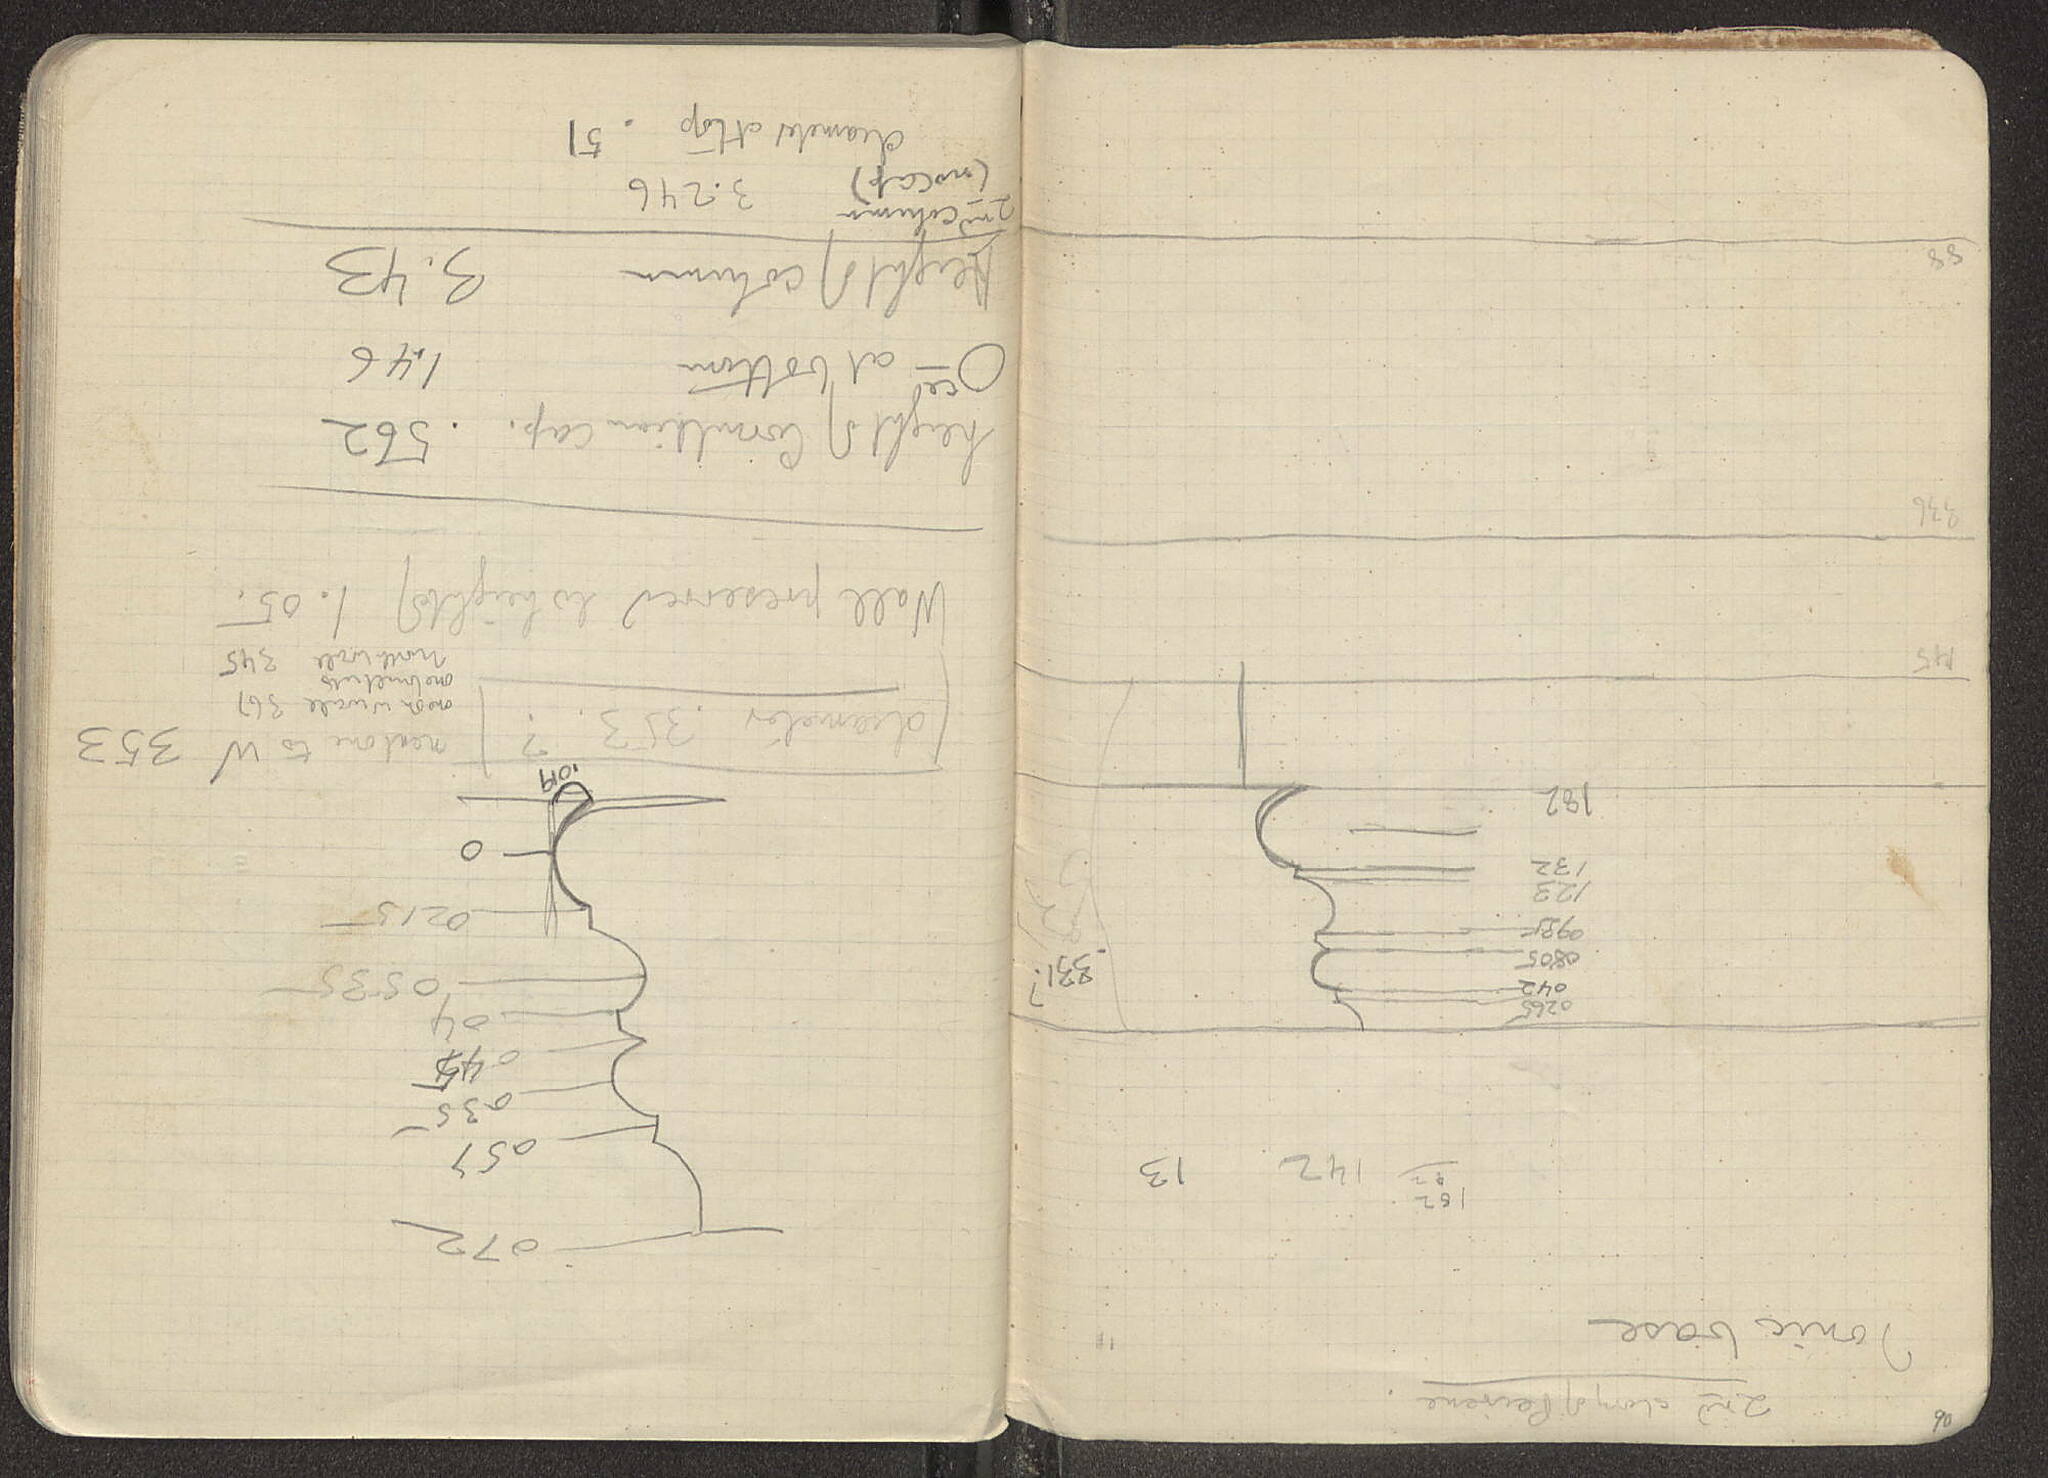 90
2nd story of Peirene
Ionic base
182
42
142
13
0265
042
.331?
0805
0985
123
132
182
145
336
88
072
057
035
045
04
0535
0215
0
.019
diameter .353. ?
next one to W 353
one on W wall 367
north wall 345
Wall preserved to height of 1.05.
height of Corinthian cap. .562
at bottom 1.46
height of column 3.43
2nd column 3.246
(no cap)
diameter at top .51